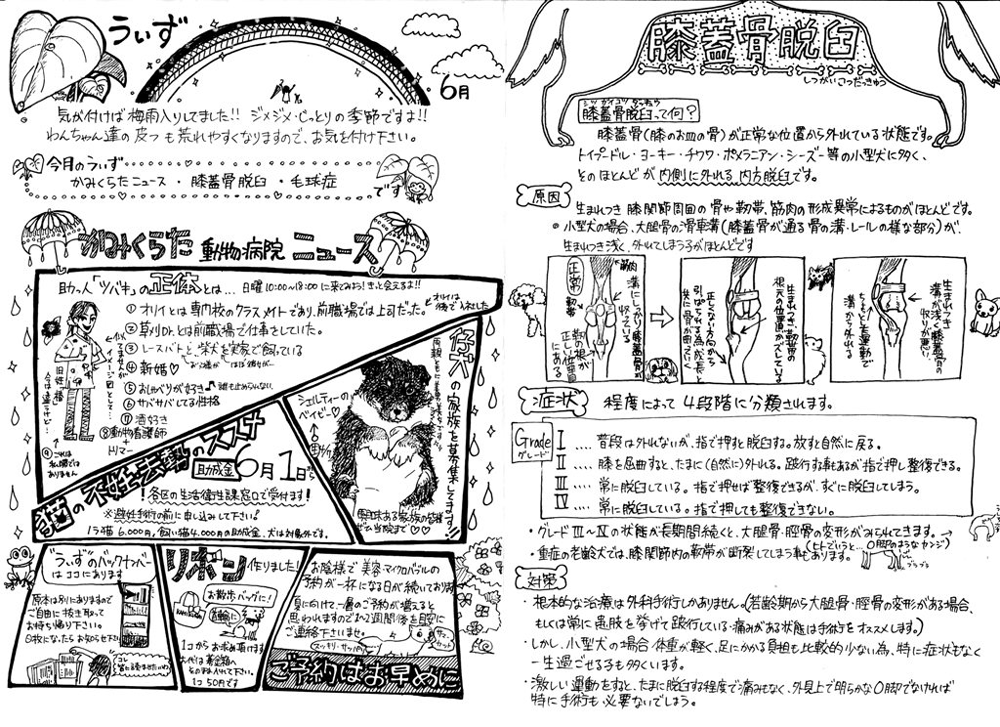 うぃず
6月
気が付けば梅雨入りしてました!! ジメジメ・じっとりの季節ですよ!!
わんちゃん達の皮フも荒れやすくなりますので、お気を付け下さい。
今月のうぃず
かみくらたニュース・膝蓋骨脱臼・毛球症
です
かみくらた動物病院ニュース
助っ人「ツバキ」の正体とは… 日曜10:00~18:00に来てみお! きっと会えるよ!!
① オリイとは専門校のクラスメイトであり、前職場では上司だった。
オリイは後で入社した
② 草刈Dr.とは前職場で仕事をしていた。
③ レースバトと、柴犬を実家で飼っている
④ 新婚♡
⑤ おしゃべりが好き♪ 誰も止められない
⑥ サバサバしてる性格
⑦ 酒好き
⑧ 動物看護師
+
トリマー
⑨ これは私服ではありません
仔犬の家族を募集してます!!
シェルティーのベイビー♡
猫の不妊去勢のススメ
助成金 6月1日から
各区の生活衛生課窓口で受付ます!
※避妊手術の前に申し込みして下さい!
ノラ猫6,000円、飼い猫4,000円の助成金、犬は対象外です。
"うぃず"のバックナンバーはココにあります
原本は別にありますのでご自由に抜き取ってお持ち帰り下さい。
0枚になったらお知らせ下さい
リボン作りました!
お散歩バッグに!
首輪に!
1コからお求め頂けます
お代は募金箱へその手で入れて下さい。
1コ50円です
お陰様で美容・マイクロバブルの
予約が一杯になる日が続いており
夏に向けて一層のご予約が増えると
思われますので1~2週間後を目安に
ご連絡下さいませ。
スッキリ・サッパリ
ご予約はお早めに
膝蓋骨脱臼
しつがいこつだっきゅう
膝蓋骨脱臼って何?
膝蓋骨(膝のお皿の骨)が正常な位置から外れている状態です。
トイプードル・ヨーキー・チワワ・ポメラニアン・シーズー等の小型犬に多く、
そのほとんどが内側に外れる内方脱臼です。
原因
生まれつき膝関節周囲の骨や靭帯、筋肉の形成異常によるものがほとんどです。
◎小型犬の場合、大腿骨の滑車溝(膝蓋骨が通る骨の溝・レールの様な部分)が、
生まれつき浅く、外れてしまうるがほとんどです
正常
筋肉
溝にしっかり膝蓋骨が収っている
靭帯
靭帯の根が正しい位置にある
生まれつき、靭帯の根元の位置がズレている
正しくない方向から引っぱられる為、成長と共に骨が曲っていく
生まれつき溝が浅く膝蓋骨の収りが悪い
ちょっとした運動で溝から外れる
症状
程度によって4段階に分類されます。
Grade
グレード
Ⅰ …. 普段は外れないが、指で押すと脱臼する。放すと自然に戻る。
Ⅱ …. 膝を屈曲すると、たまに(自然に)外れる。跛行する事もあるが指で押し整復できる。
Ⅲ …. 常に脱臼している。指で押せば整復できるが、すぐに脱臼してしまう。
Ⅳ …. 常に脱臼している。指で押しても整復できない。
・グレードⅢ~Ⅳの状態が長期間続くと、大腿骨・脛骨の変形がみられてきます。
(ヒトでいうと…O脚のようなカンジ)
・重症の老齢犬では、膝関節内の靭帯が断裂してしまう事もあります。
ブラブラ
対策
・根本的な治療は外科手術しかありません。(若齢期から大腿骨・脛骨の変形がある場合、
もしくは常に患肢を挙げて跛行している・痛みがある状態は手術をオススメします。)
・しかし、小型犬の場合、体重が軽く、足にかかる負担も比較的少ない為、特に症状もなく
一生過ごせる子も多くいます。
・激しい運動をすると、たまに脱臼する程度で痛みもなく、外見上で明らかなO脚でなければ
特に手術も必要ないでしょう。